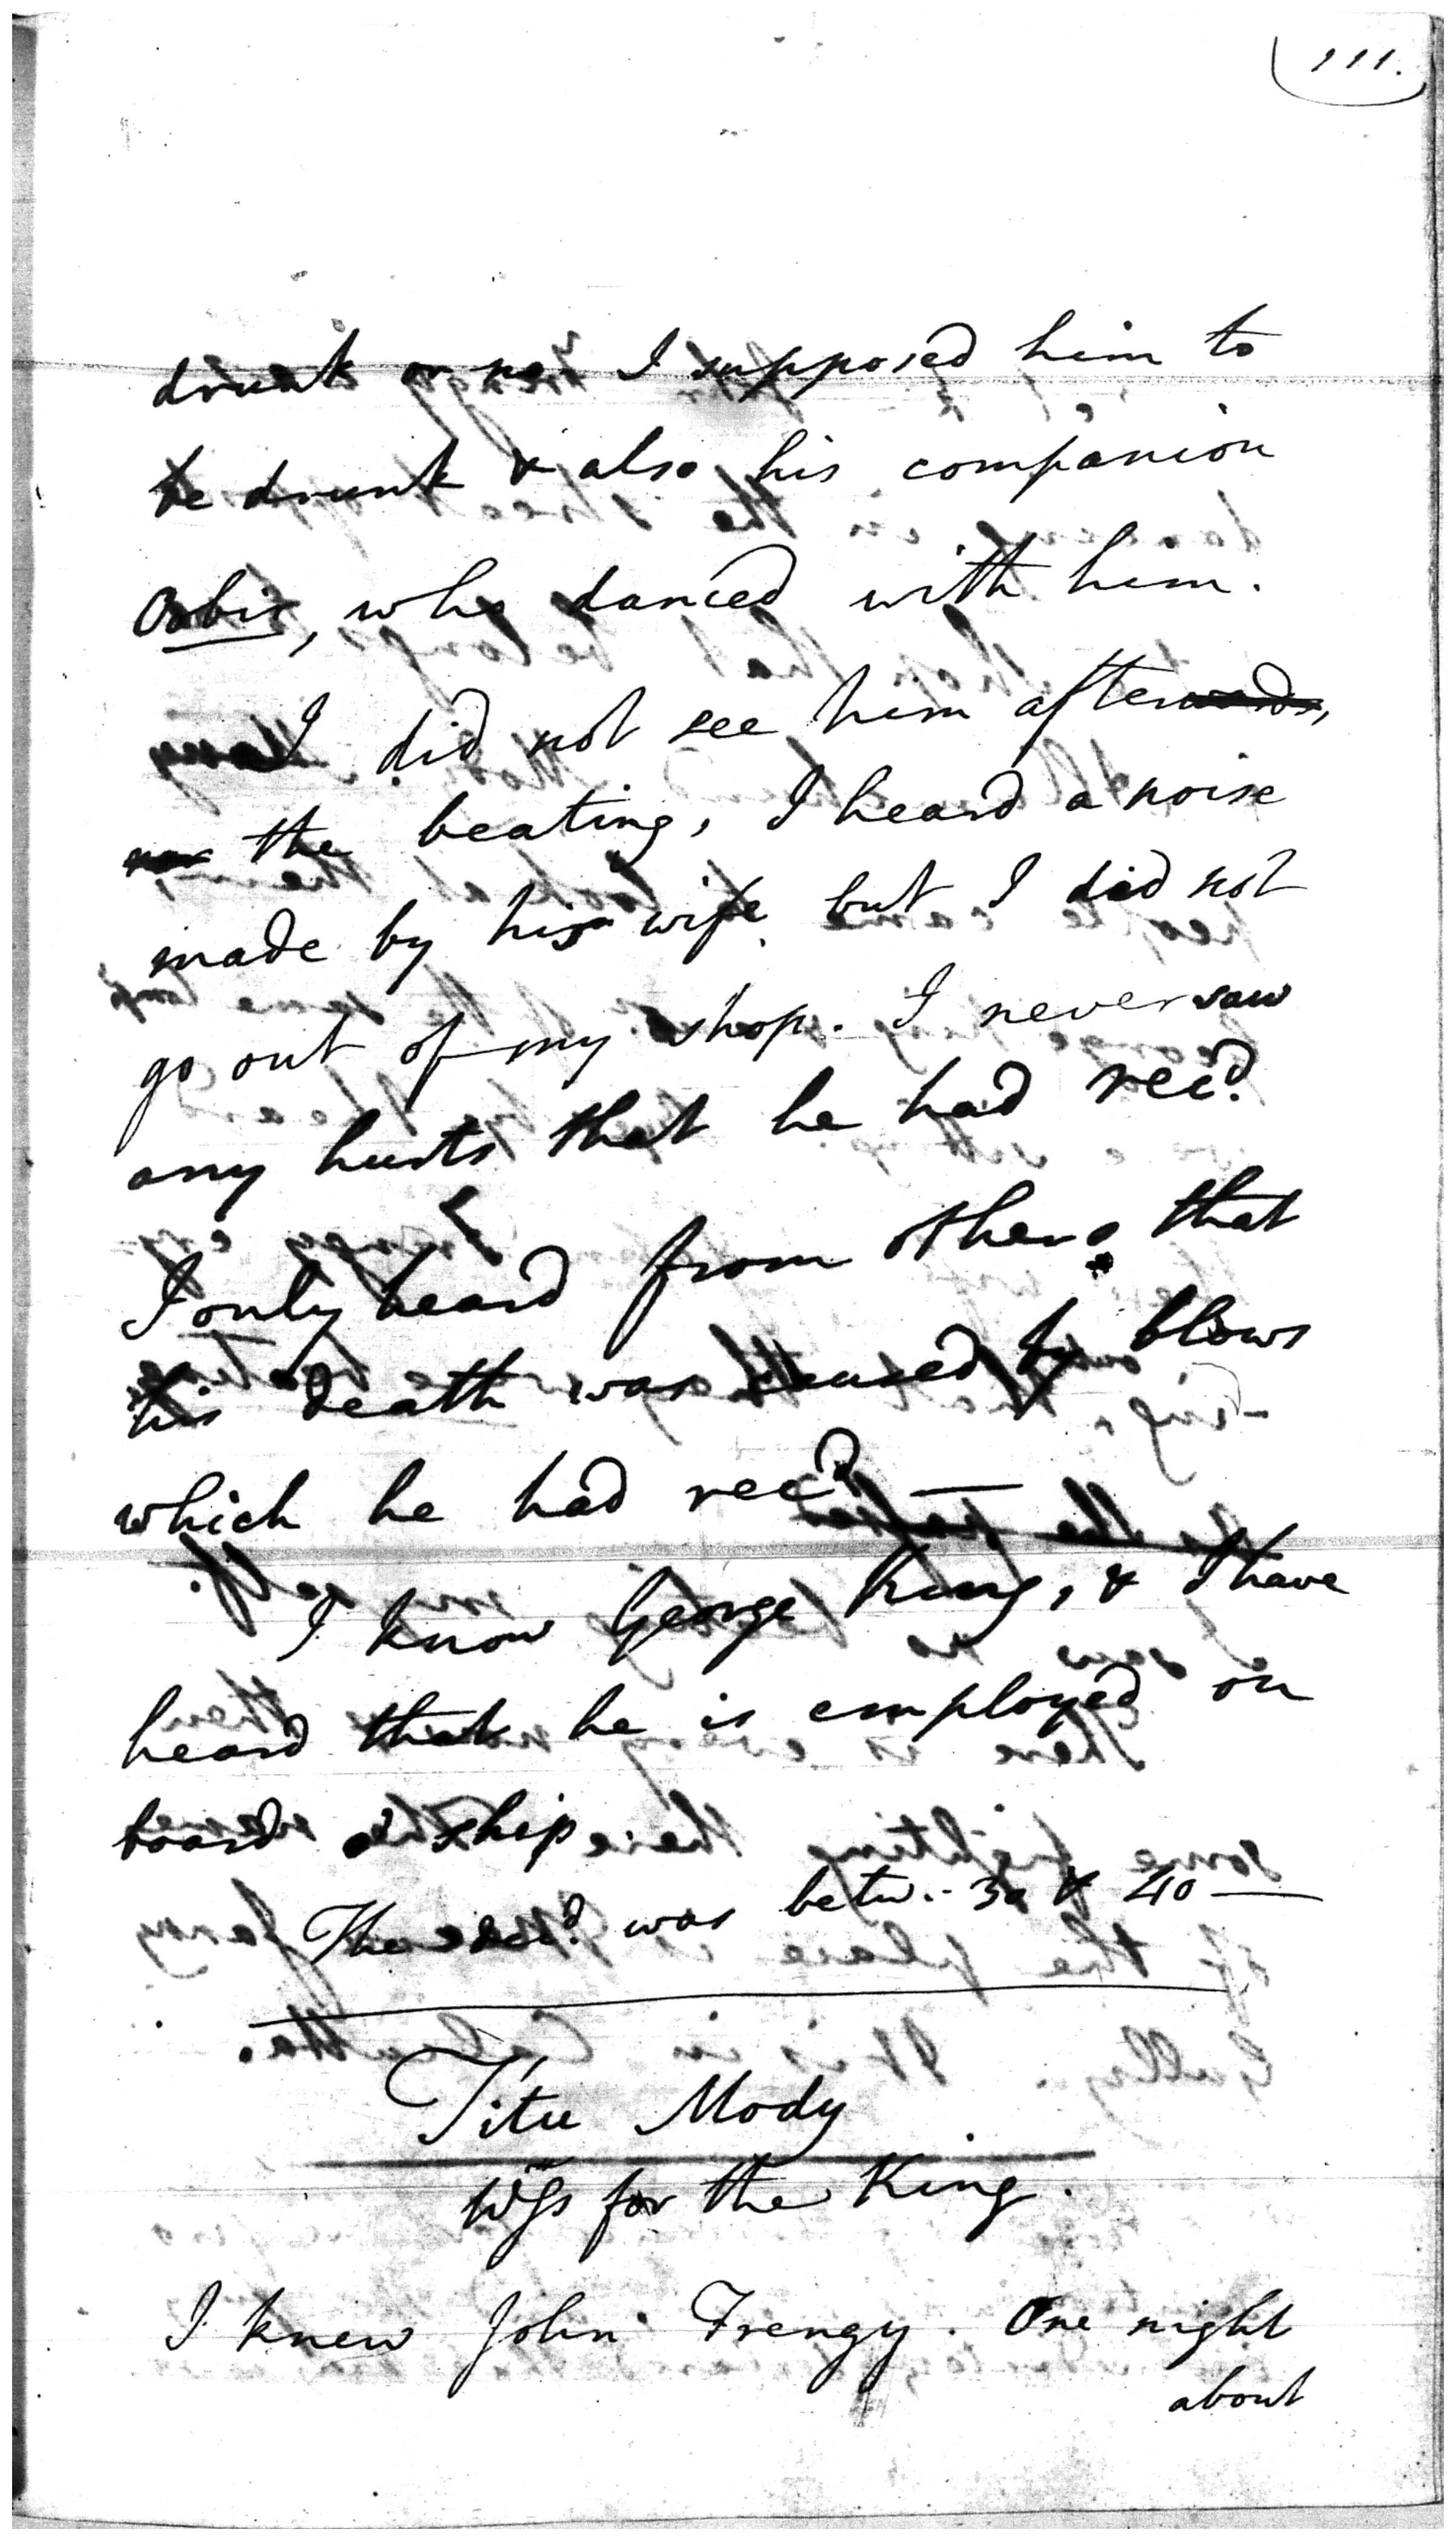 111.
drunk or no. I supposed him to
be drunk & also his companion
Orbis, who danced with him.
I did not see him after
the beating, I heard a noise
made by his wife but I did not
go out of my shop. I never saw
any hurts that he had recd.
I only heard from others that
his death was caused by blows
which he had recd. —
I know George King, & I have
heard that he is employed on
board a ship
The decd. was betw.. 30 & 40 —
Titu Mody
Wss for the King.
I knew John Frengy. One night
about